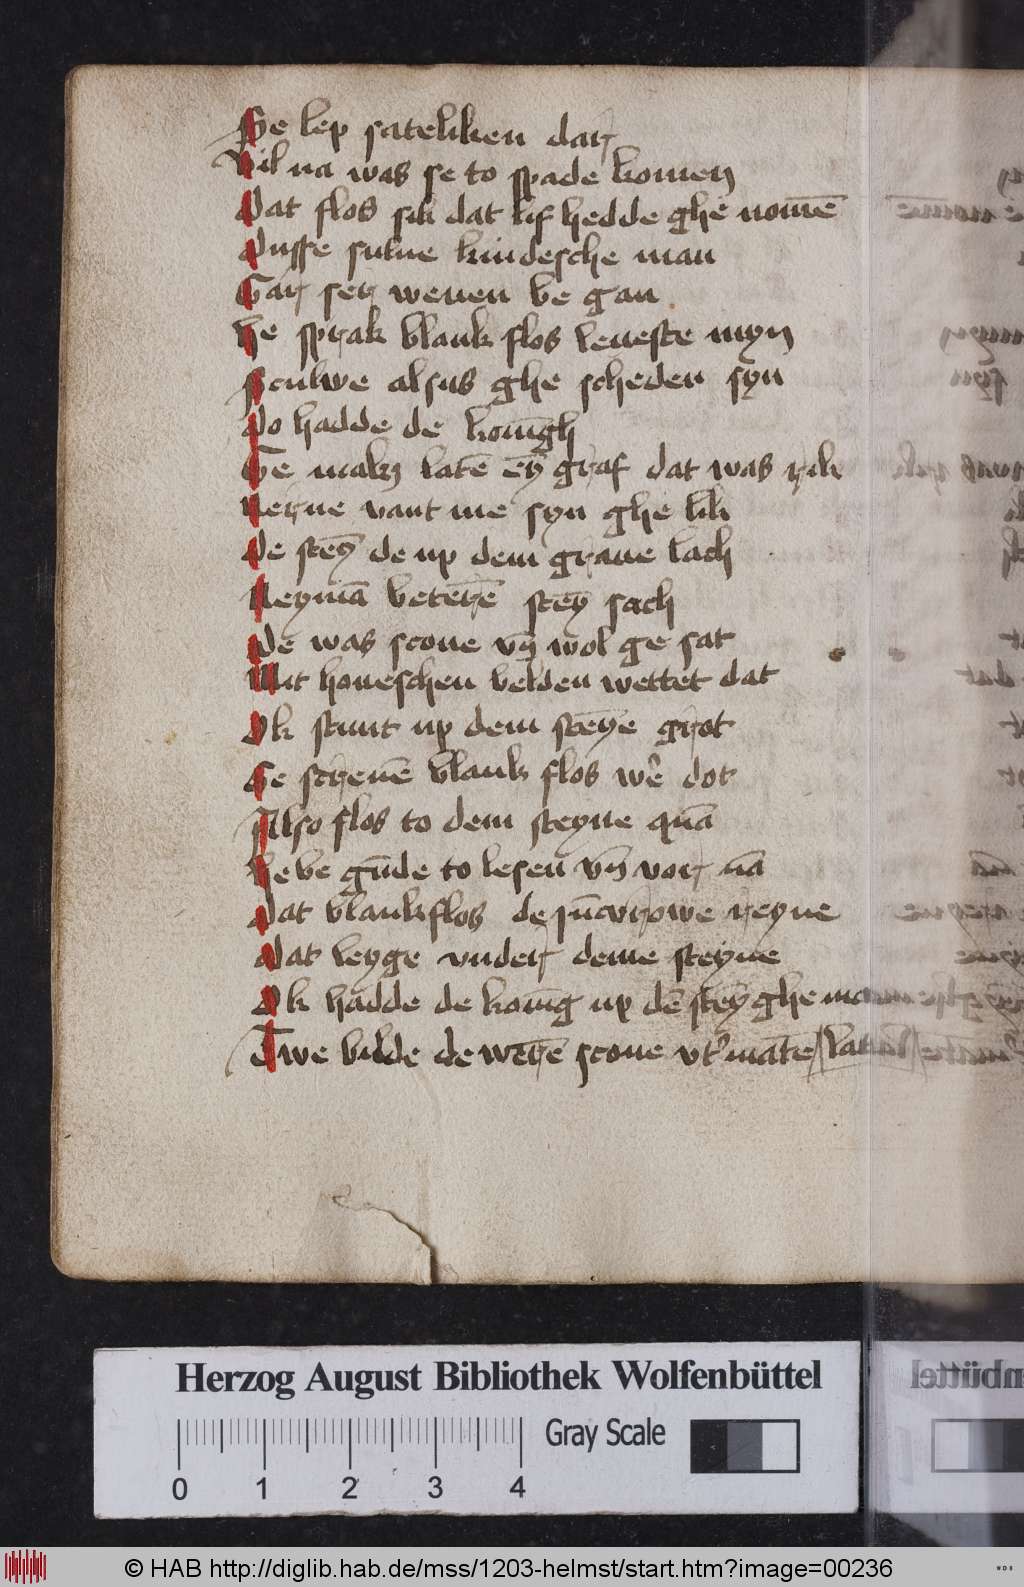 Se lep sateliken dar
Vil na was se to spade komen
Dat flos sik dat lif hedde ghe nomē
Dusse sulue kindesche man
Gar ser wenen be gan
he sprak blank flos leueste myn
Sculwe alsus ghe scheden syn
Do hadde de konīgh
Ge maket latē eȳ graf dat was rik
Nerne vant me syn ghe lik
De steȳ de up dem graue lach
Neymā beterē steȳ sach
De was scone vn̄ wol ge sat
Mit houeschen belden wettet dat
Ok stunt up dem steyne grot
Ge screuē blank flos wē dot
Also flos to dem steyne quā
he be gūde to lesen vn̄ vor nā
Dat blankflos de jūcvrowe reyne
Dat leyge vnder deme steyne
Ok hadde de konīg up dē steȳ ghe
Twe bilde de werē scone vt' matē
Herzog August Bibliothek Wolfenbüttel
Gray Scale
0 1 2 3 4
© HAB http://diglib.hab.de/mss/1203-helmst/start.htm?image=00236